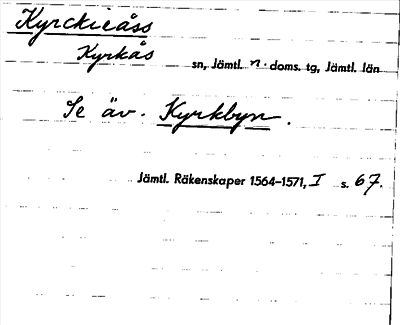 Kyrckieåss
Kyrkås sn, Jämtl. n. doms. tg, Jämtl. län
Se äv. Kyrkbyn.
Jämtl. Räkenskaper 1564-1571, I s. 67.